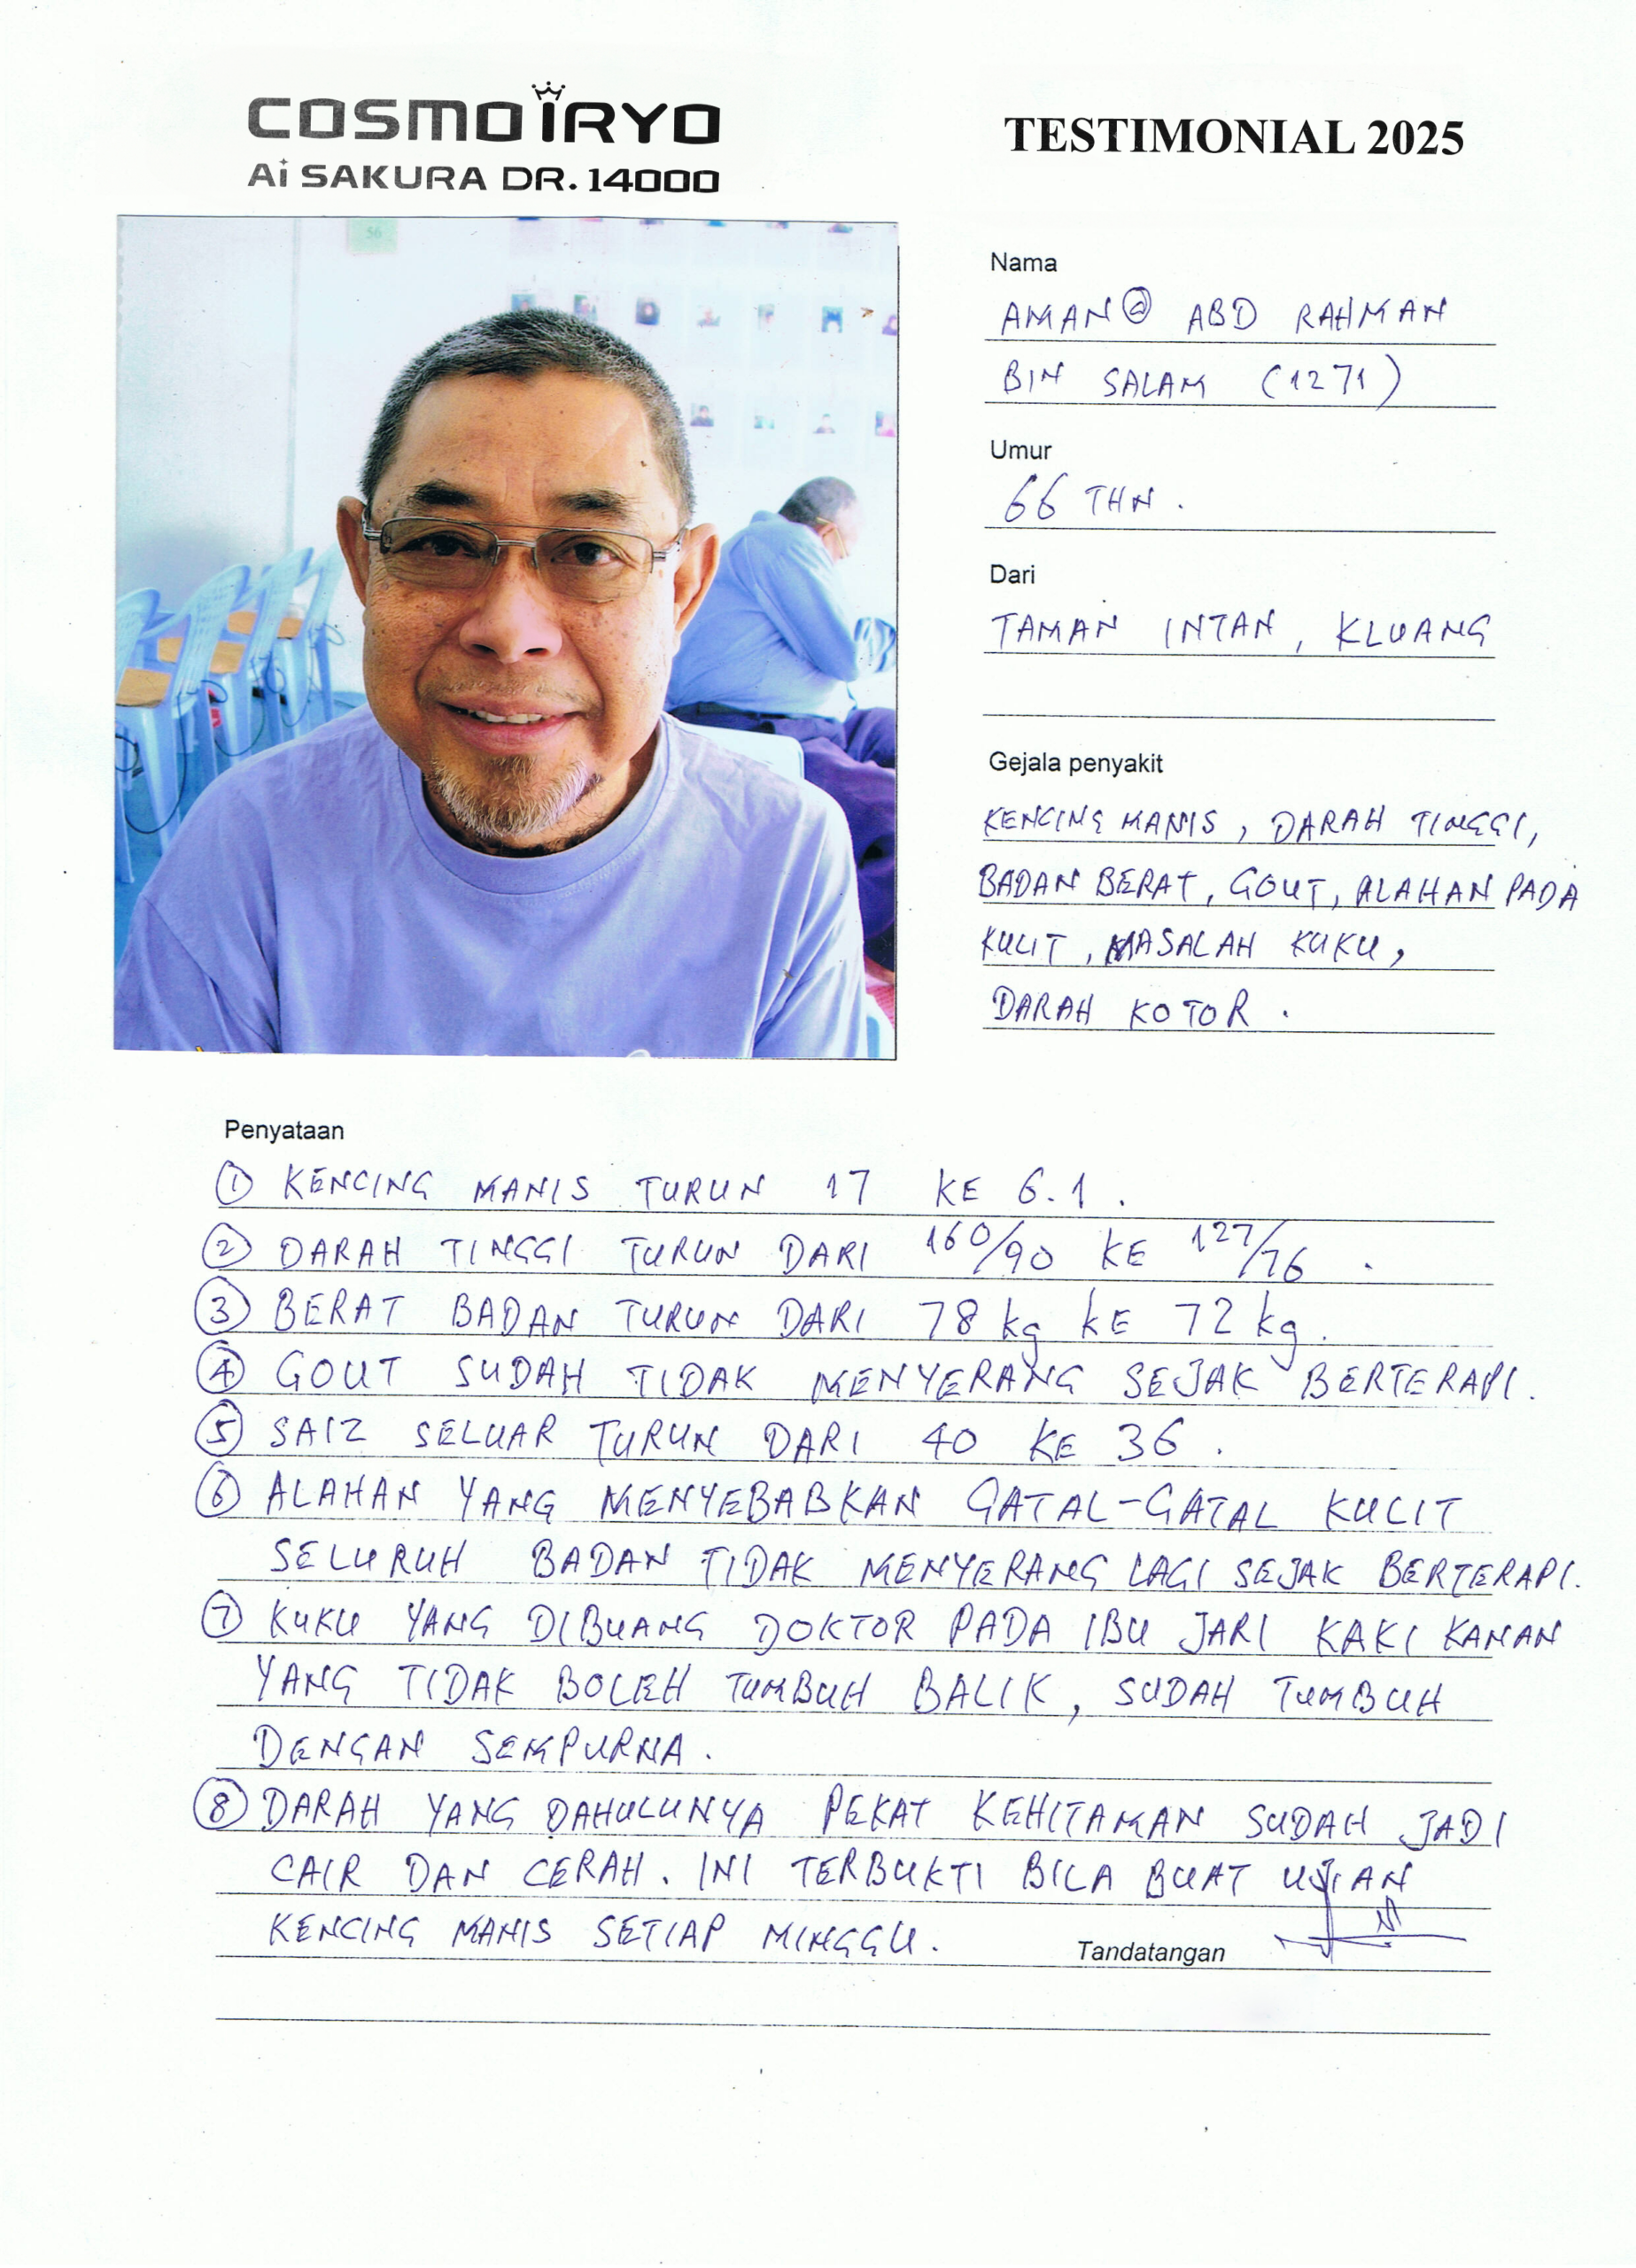 COSMO IRYO
Ai SAKURA DR. 14000
TESTIMONIAL 2025
56
Nama
AMAN @ ABD RAHMAN
BIN SALAM (1271)
Umur
66 THN.
Dari
TAMAN INTAN, KLUANG
Gejala penyakit
KENCING MANIS, DARAH TINGGI,
BADAN BERAT, GOUT, ALAHAN PADA
KULIT, MASALAH KUKU,
DARAH KOTOR.
Penyataan
① KENCING MANIS TURUN 17 KE 6.1.
② DARAH TINGGI TURUN DARI 160/90 KE 127/76.
③ BERAT BADAN TURUN DARI 78 kg KE 72 kg.
④ GOUT SUDAH TIDAK MENYERANG SEJAK BERTERAPI.
⑤ SAIZ SELUAR TURUN DARI 40 KE 36.
⑥ ALAHAN YANG MENYEBABKAN GATAL-GATAL KULIT
SELURUH BADAN TIDAK MENYERANG LAGI SEJAK BERTERAPI.
⑦ KUKU YANG DIBUANG DOKTOR PADA IBU JARI KAKI KANAN
YANG TIDAK BOLEH TUMBUH BALIK, SUDAH TUMBUH
DENGAN SEMPURNA.
⑧ DARAH YANG DAHULUNYA PEKAT KEHITAMAN SUDAH JADI
CAIR DAN CERAH. INI TERBUKTI BILA BUAT UJIAN
KENCING MANIS SETIAP MINGGU.
Tandatangan